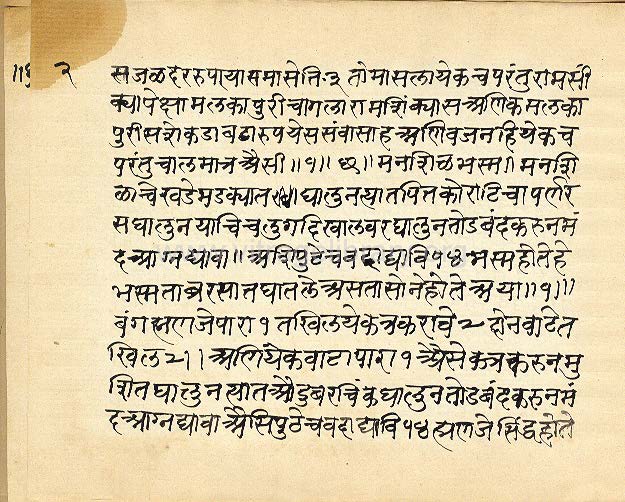 ॥६ २ सजळ दर रुपायास मासे ति ३ तो मासला येकच परंतु रामसी
क्यापेक्षा मलकापुरी चागला रामशिक्यास अणिक मलका
पुरीस शेकडा बटा रुपये ससंवासाह अणि वजनहि येकच
परंतु चाल मात्र अैसी ॥१॥ छ ॥ मनशिळ भस्म ॥ मनशि
ळाचे खडे मडक्यात घालुन त्यात पितकोराटिचा पलीरे
स घालुन याचि चलुगदि खालवर घालुन तोडबंद करुन मं
द आग्न द्यावा ॥ अशि पुटे चवदा द्यावि १४ भस्म होते हे
भस्म ताबरसात घातले असता सोने होते अया ॥१॥
बंग ह्मणजे पारा १ तखिल येकत्र करावे २ दोन वाटे त
खिल २।। आणि येक वाटा पारा १ अैसे कत्र करुन मु
शित घालुन त्यात औडुबराचे घालुन तोडबंद करुन मं
द आग्न द्यावा अैसि पुटे चवदा द्यावि १४ ह्मणजे सिद्ध होते